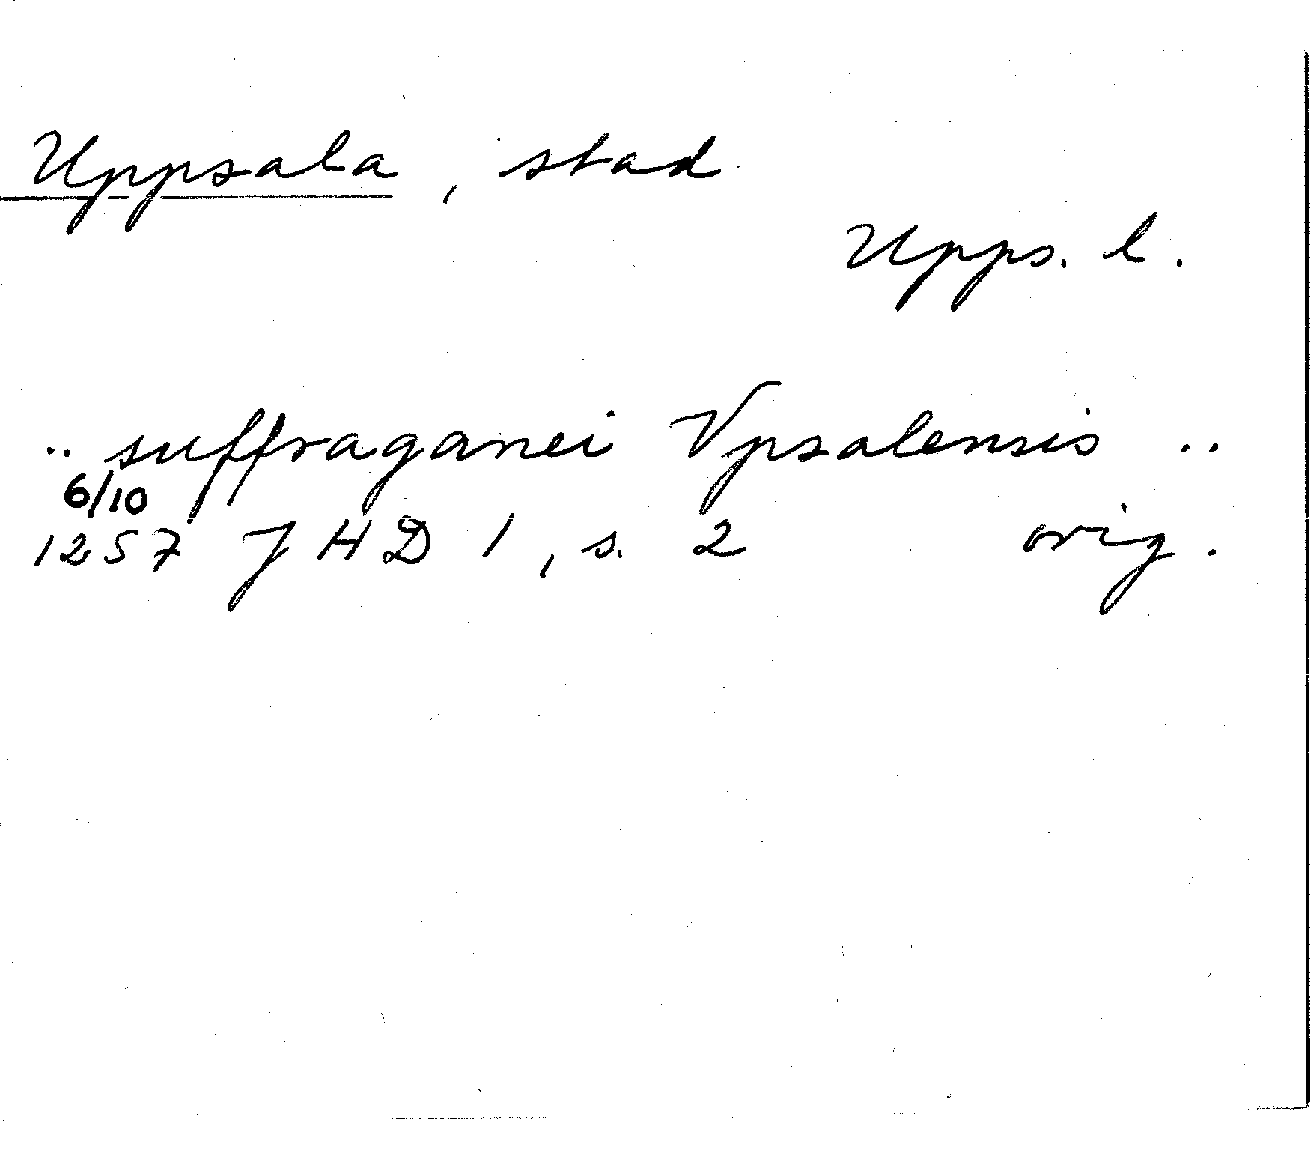 Uppsala, stad
Upps. l.
.. suffraganei Vpsalensis ..
6/10
1257 JHD 1, s. 2 orig.